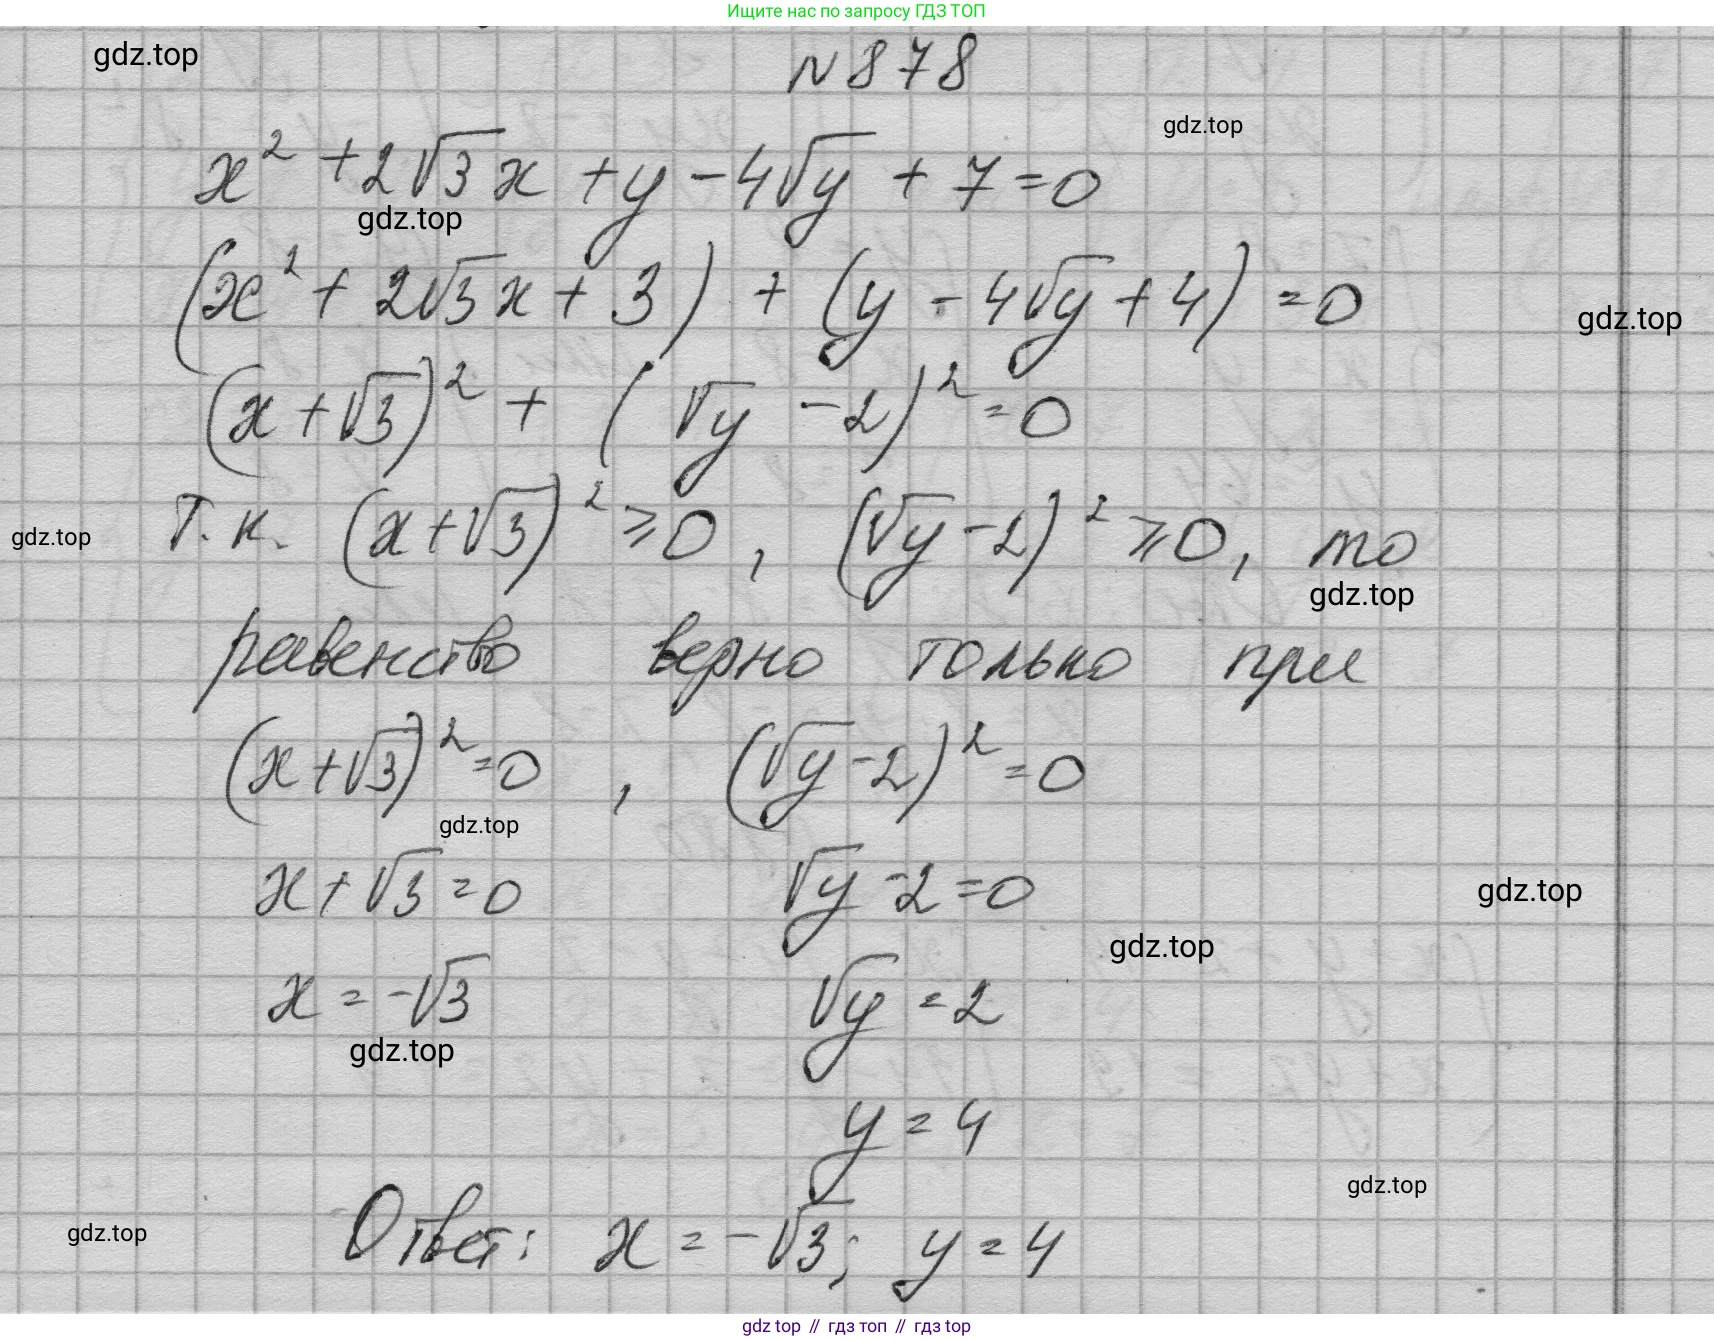 Ищите нас по запросу ГДЗ ТОП
gdz.top
N 878
gdz.top
x² + 2√3x + y - 4√y + 7 = 0
gdz.top
(x² + 2√3x + 3) + (y - 4√y + 4) = 0
gdz.top
(x + √3)² + (√y - 2)² = 0
т.к. (x + √3)² ⩾ 0, (√y - 2)² ⩾ 0, то
gdz.top
gdz.top
равенство верно только при
(x + √3)² = 0, (√y - 2)² = 0
gdz.top
x + √3 = 0 √y - 2 = 0
gdz.top
gdz.top
x = -√3 √y = 2
gdz.top
y = 4
gdz.top
gdz.top
Ответ: x = -√3; y = 4
gdz top // гдз топ // гдз top